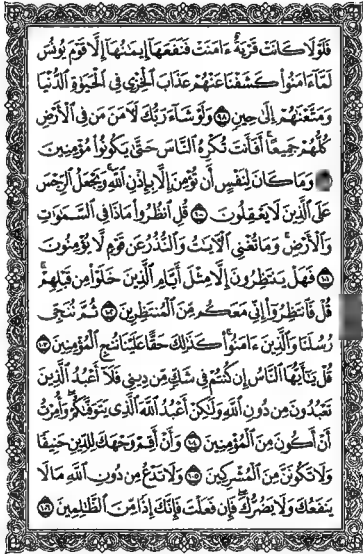 فَلَوْلَا كَانَتْ قَرْيَةٌ ءَامَنَتْ فَنَفَعَهَآ إِيمَٰنُهَآ إِلَّا قَوْمَ يُونُسَ
لَمَّآ ءَامَنُوا۟ كَشَفْنَا عَنْهُمْ عَذَابَ ٱلْخِزْىِ فِى ٱلْحَيَوٰةِ ٱلدُّنْيَا
وَمَتَّعْنَٰهُمْ إِلَىٰ حِينٍ ٩٨ وَلَوْ شَآءَ رَبُّكَ لَءَامَنَ مَن فِى ٱلْأَرْضِ
كُلُّهُمْ جَمِيعًا ۚ أَفَأَنتَ تُكْرِهُ ٱلنَّاسَ حَتَّىٰ يَكُونُوا۟ مُؤْمِنِينَ
وَمَا كَانَ لِنَفْسٍ أَن تُؤْمِنَ إِلَّا بِإِذْنِ ٱللَّهِ ۚ وَيَجْعَلُ ٱلرِّجْسَ
عَلَى ٱلَّذِينَ لَا يَعْقِلُونَ ١٠٠ قُلِ ٱنظُرُوا۟ مَاذَا فِى ٱلسَّمَٰوَٰتِ
وَٱلْأَرْضِ ۚ وَمَا تُغْنِى ٱلْءَايَٰتُ وَٱلنُّذُرُ عَن قَوْمٍ لَّا يُؤْمِنُونَ
١٠١ فَهَلْ يَنتَظِرُونَ إِلَّا مِثْلَ أَيَّامِ ٱلَّذِينَ خَلَوْا۟ مِن قَبْلِهِمْ ۚ
قُلْ فَٱنتَظِرُوٓا۟ إِنِّى مَعَكُم مِّنَ ٱلْمُنتَظِرِينَ ١٠٢ ثُمَّ نُنَجِّى
رُسُلَنَا وَٱلَّذِينَ ءَامَنُوا۟ ۚ كَذَٰلِكَ حَقًّا عَلَيْنَا نُنجِ ٱلْمُؤْمِنِينَ ١٠٣
قُلْ يَٰٓأَيُّهَا ٱلنَّاسُ إِن كُنتُمْ فِى شَكٍّ مِّن دِينِى فَلَآ أَعْبُدُ ٱلَّذِينَ
تَعْبُدُونَ مِن دُونِ ٱللَّهِ وَلَٰكِنْ أَعْبُدُ ٱللَّهَ ٱلَّذِى يَتَوَفَّىٰكُمْ ۖ وَأُمِرْتُ
أَنْ أَكُونَ مِنَ ٱلْمُؤْمِنِينَ ١٠٤ وَأَنْ أَقِمْ وَجْهَكَ لِلدِّينِ حَنِيفًا
وَلَا تَكُونَنَّ مِنَ ٱلْمُشْرِكِينَ ١٠٥ وَلَا تَدْعُ مِن دُونِ ٱللَّهِ مَا لَا
يَنفَعُكَ وَلَا يَضُرُّكَ ۖ فَإِن فَعَلْتَ فَإِنَّكَ إِذًا مِّنَ ٱلظَّٰلِمِينَ ١٠٦